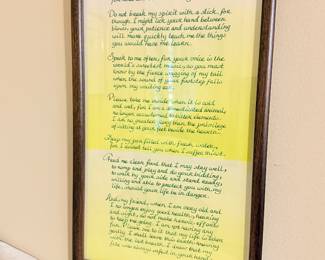 Do not break my spirit with a stick, for
though I might lick your hand between
blows, your patience and understanding
will more quickly teach me the things
you would have me learn.
Speak to me often, for your voice is the
world's sweetest music, as you must
know by the fierce wagging of my tail
when the sound of your footstep falls
upon my waiting ear.
Please take me inside when it is cold
and wet, for I am a domesticated animal,
no longer accustomed to bitter elements.
I ask no greater glory than the privilege
of sitting at your feet beside the hearth.
Keep my pan filled with fresh water,
for I cannot tell you when I suffer thirst.
Feed me clean food that I may stay well,
to romp and play and do your bidding,
to walk by your side and stand ready,
willing and able to protect you with my
life, should your life be in danger.
And, my friend, when I am very old and
I no longer enjoy good health, hearing
and sight, do not make heroic efforts
to keep me going. I am not having any
fun. Please see to it that my life is taken
gently. I shall leave this earth knowing
with the last breath I draw that my
fate was always safest in your hands.